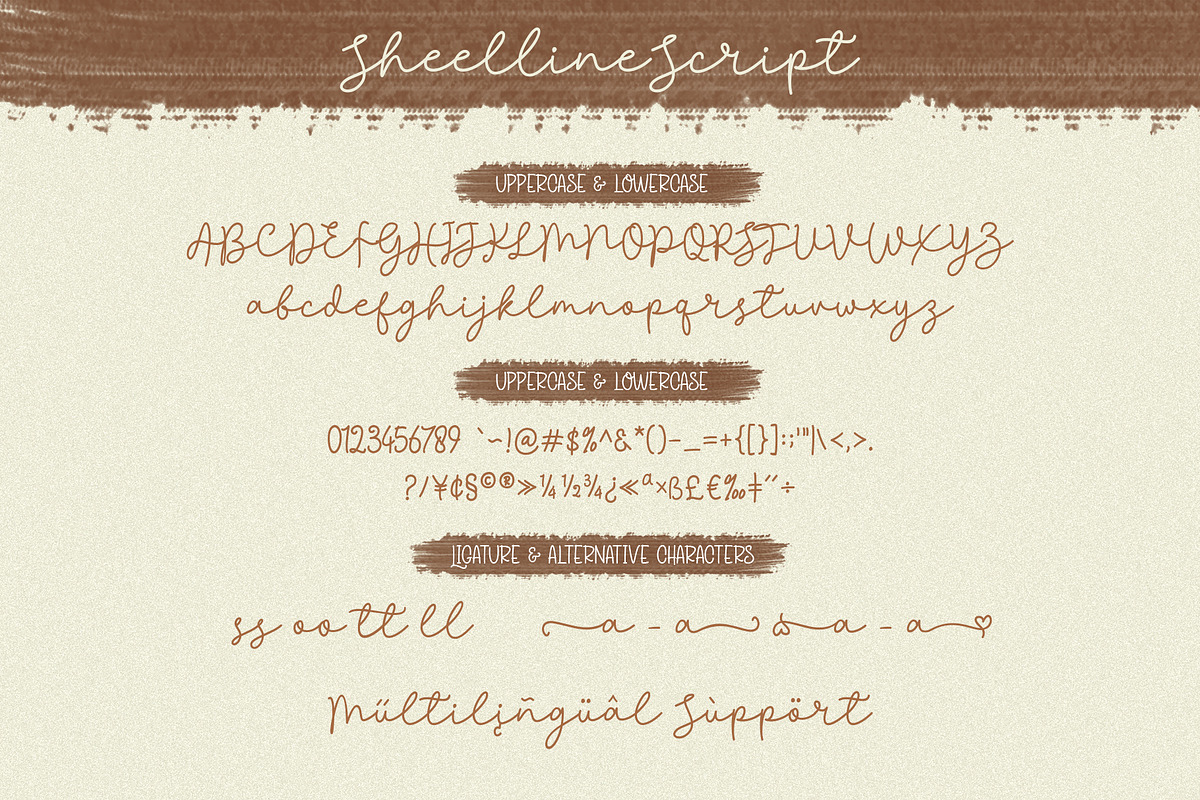 Sheelline Script
UPPERCASE & LOWERCASE
ABCDEFGHIJKLMNOPQRSTUVWXYZ
abcdefghijklmnopqrstuvwxyz
UPPERCASE & LOWERCASE
0123456789 `~!@#$%^&*()-_=+{[}]:;'"|\<,>.
?/¥¢§©®»¼½¾¿«ª×ß£€‰‡″÷
LIGATURE & ALTERNATIVE CHARACTERS
ss oo tt ll a - a a - a
Műltilįñgüâl Sùppört